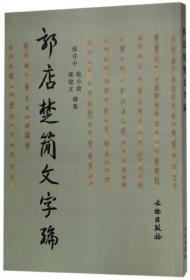 郭店楚简文字编
張守中 張小滄
郝建文 撰集
文物出版社